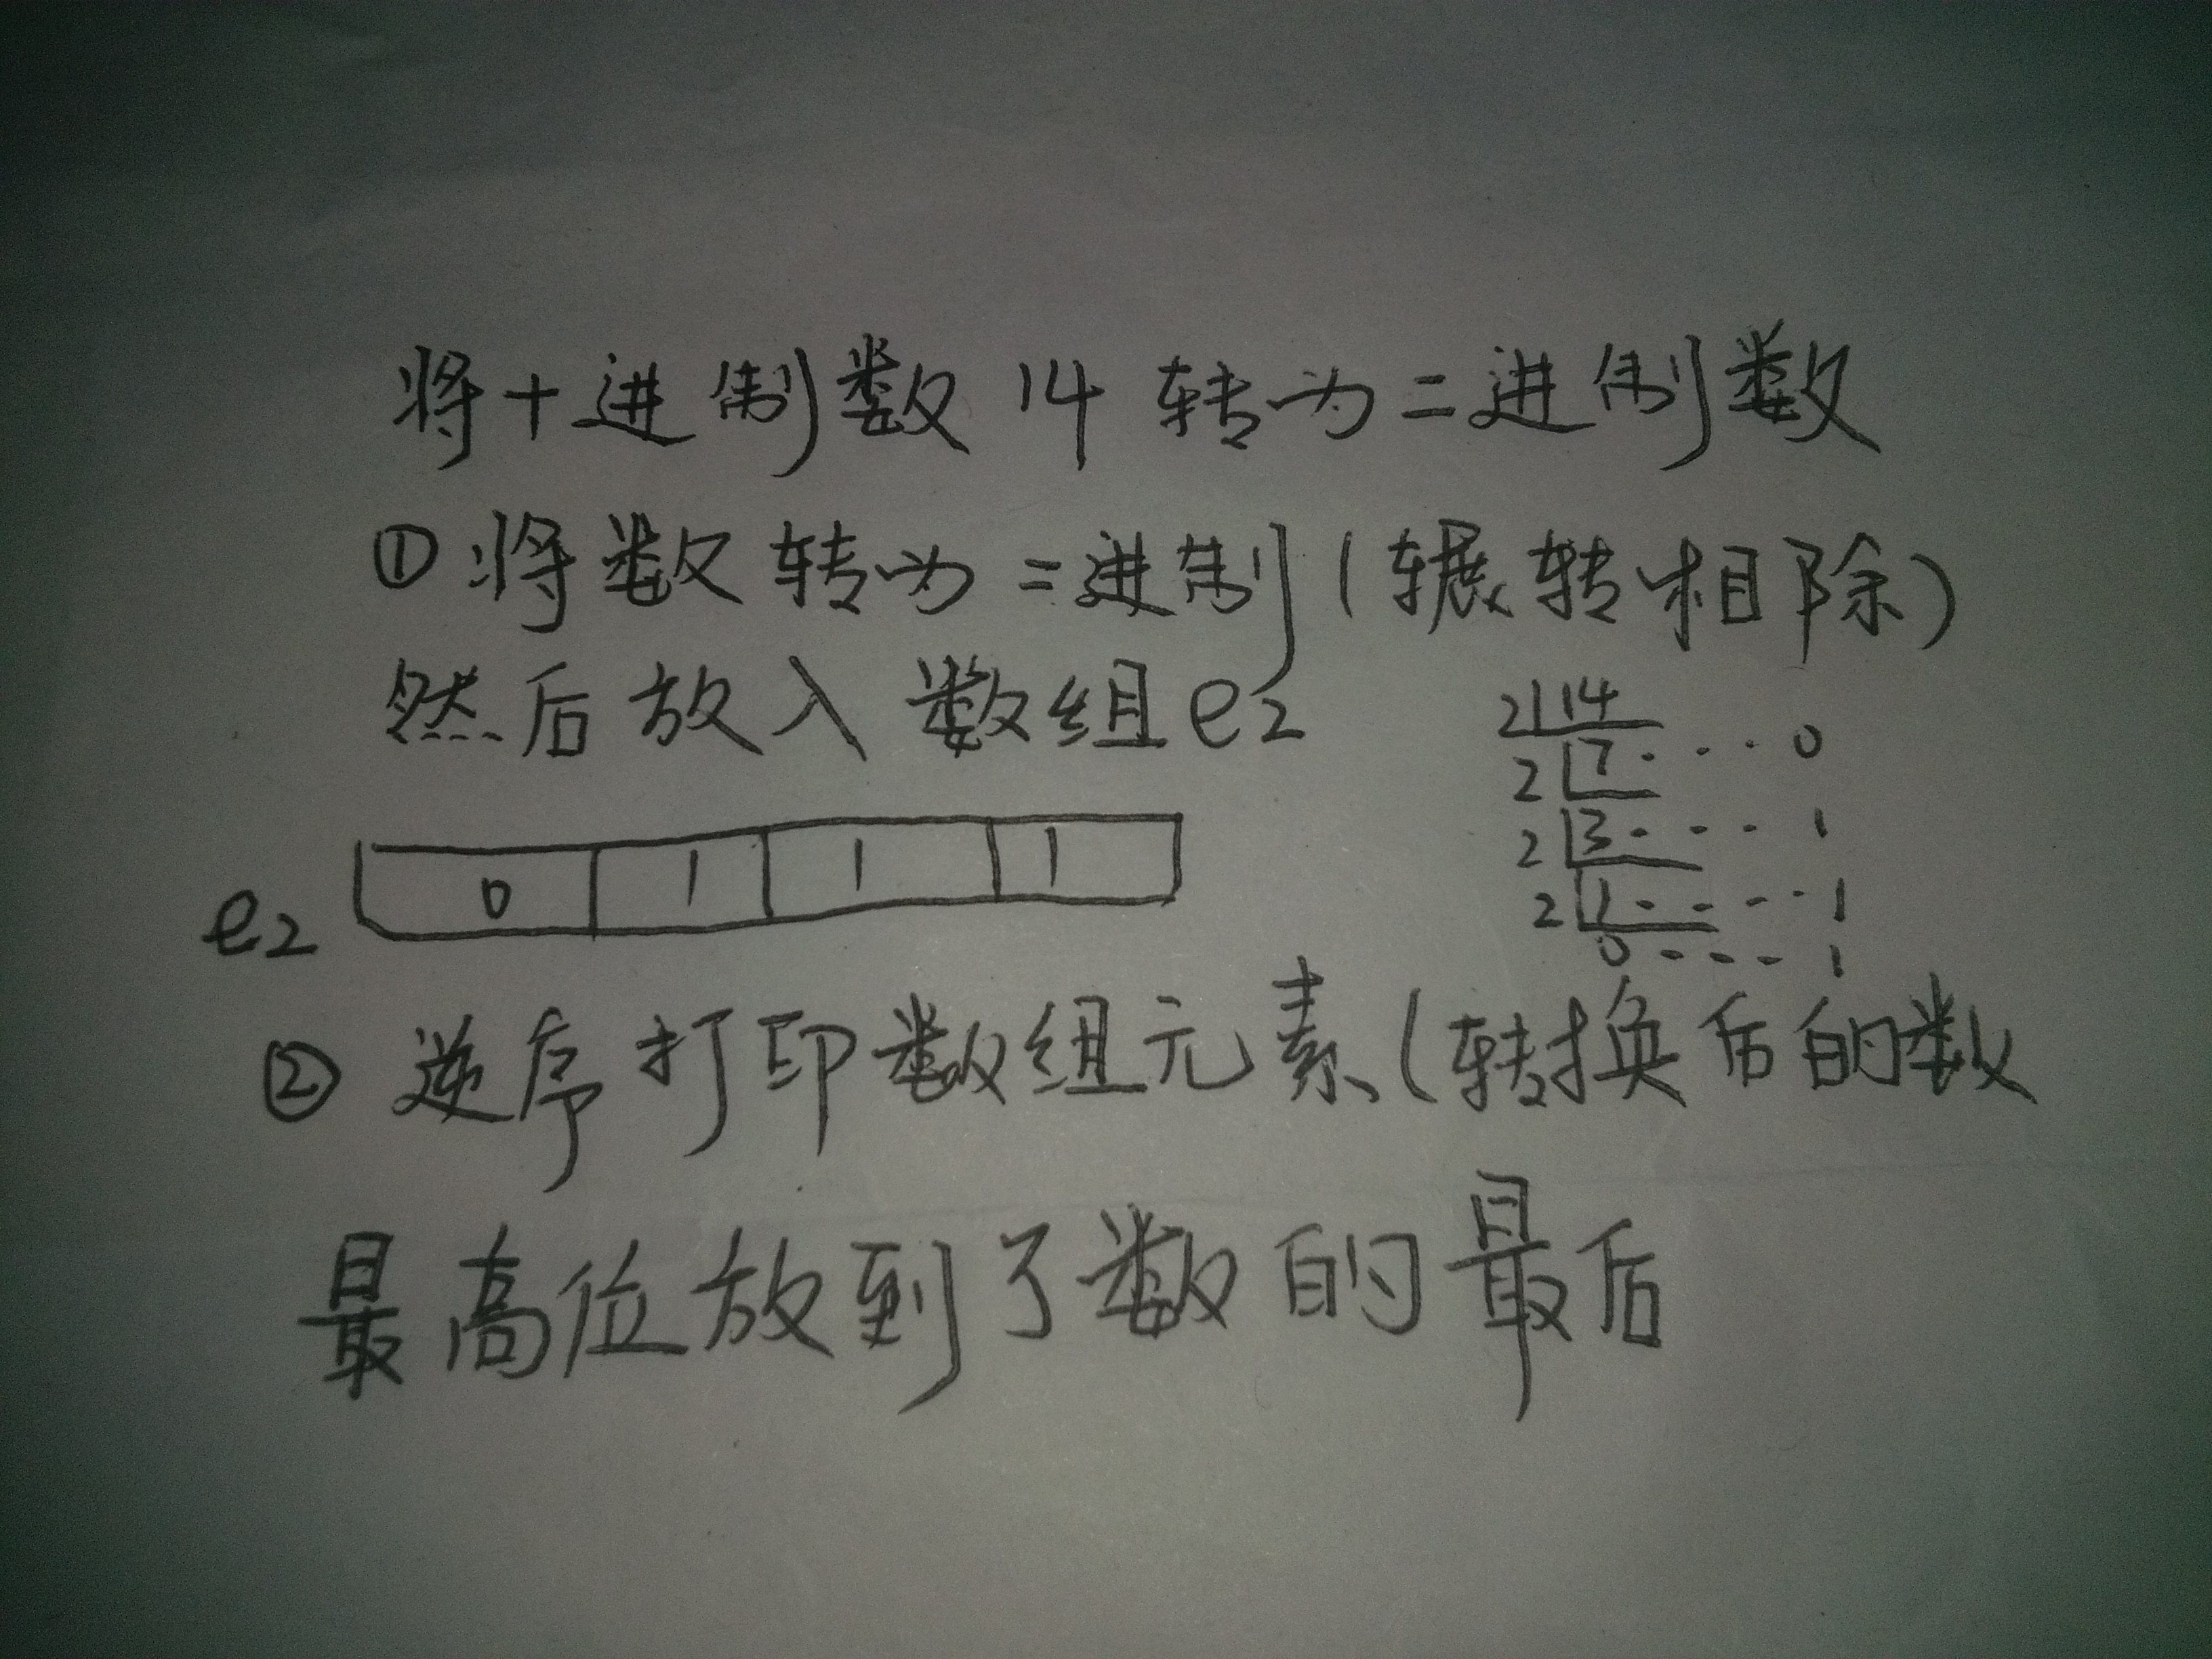 将十进制数 14 转为二进制数
①将数转为二进制(辗转相除)
然后放入数组e2
2 14
2 7 . . . 0
2 3 - - - 1
2 1 - - - - 1
0 - - - - 1
e2 0 1 1 1
② 逆序打印数组元素(转换后的数
最高位放到了数的最后